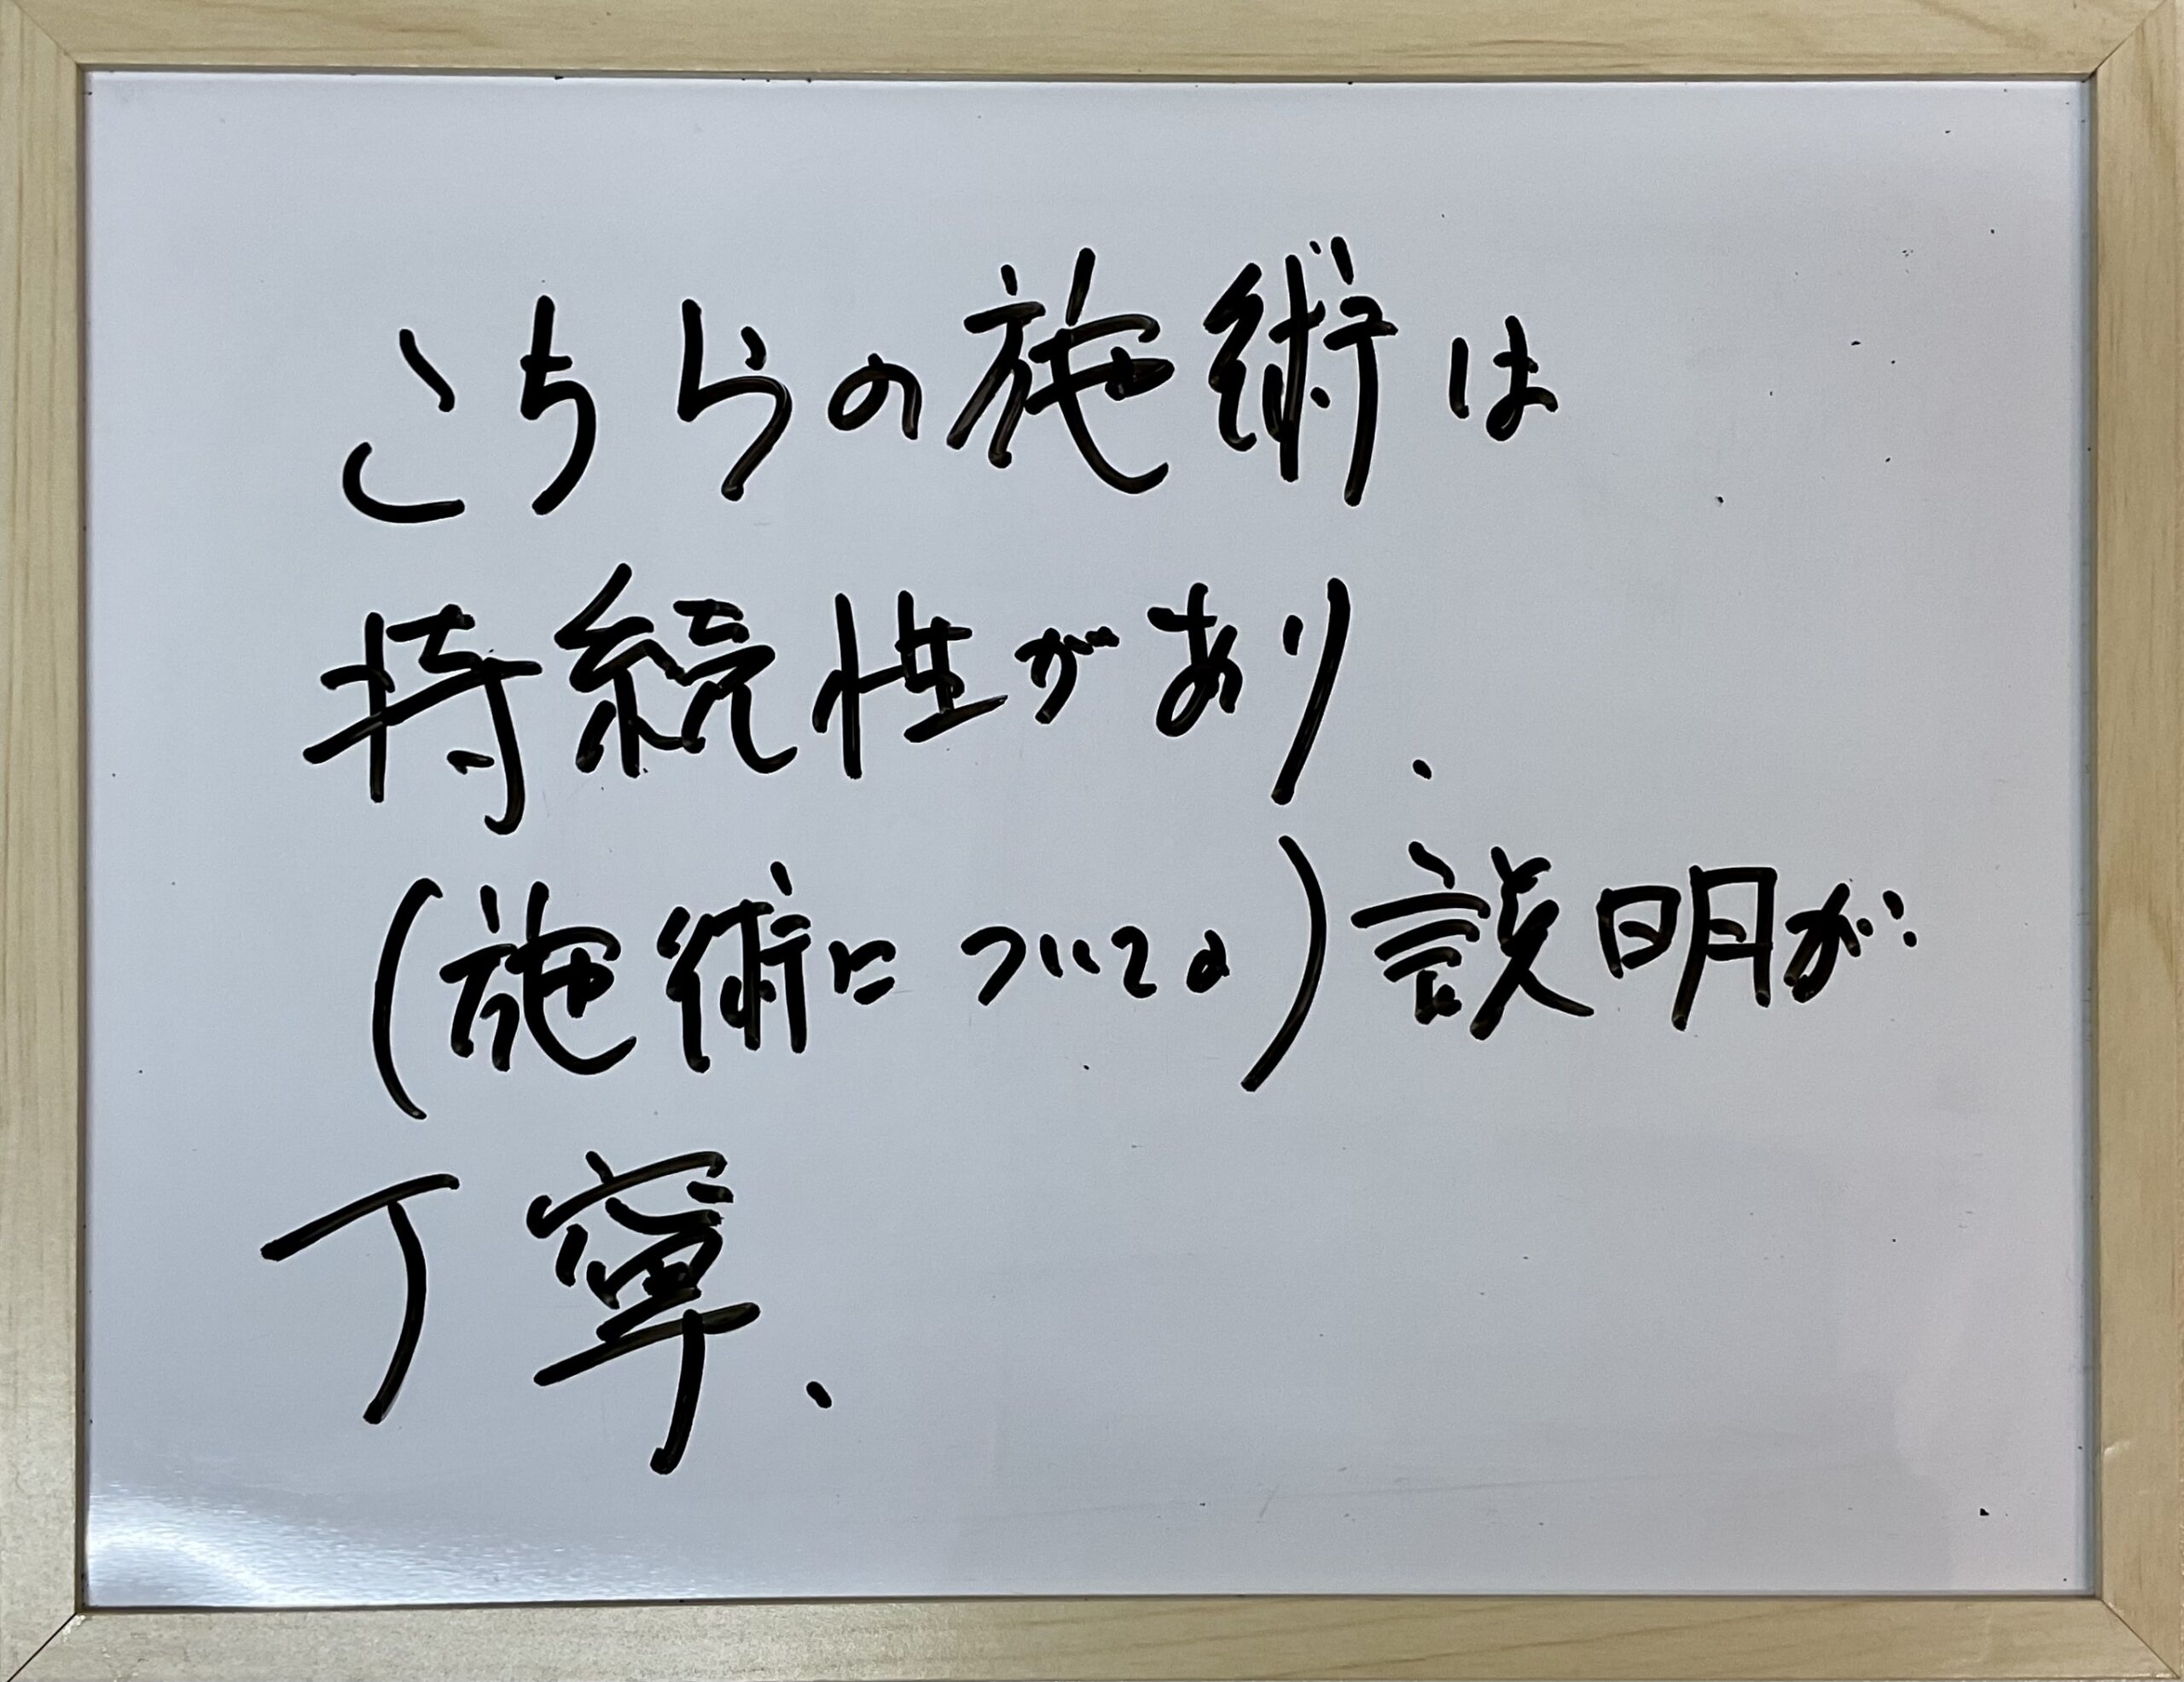 こちらの施術は
持続性があり、
(施術についての)説明が
丁寧、